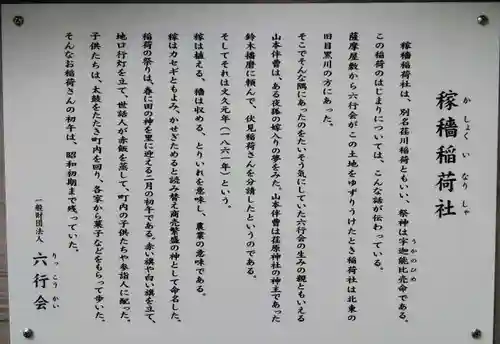 かしょくいなりしゃ
稼穡稲荷社
稼穡稲荷社は、別名荏川稲荷ともいい、祭神は宇迦能比売命である。
うかのひめ
この稲荷のはじまりについては、こんな話が伝わっている。
薩摩屋敷から六行会がこの土地をゆずりうけたとき稲荷社は北東の
旧目黒川の方にあった。
そこでそんな隅にあったのをたいそう気にしていた六行会の生みの親ともいえる
山本伴曹は、ある夜狐の嫁入りの夢をみた。山本伴曹は荏原神社の神主であった
鈴木播磨に頼んで、伏見稲荷さんを分請したというのである。
そしてそれは文久元年（一八六一年）という。
稼は植える、穡は収める、とりいれを意味し、農業の意味である。
稼はカセギともよみ、かせぎためると読み替え商売繁盛の神として命名した。
稲荷の祭りは、春に田の神を里に迎える二月の初午である。赤い旗や白い旗を立て、
地口行灯を立て、世話人が赤飯を蒸して、町内の子供たちや参詣人に配った。
子供たちは、太鼓をたたき町内を回り、各家から菓子などをもらって歩いた。
そんなお稲荷さんの初午は、昭和初期まで残っていた。
一般財団法人 六行会
りっこうかい